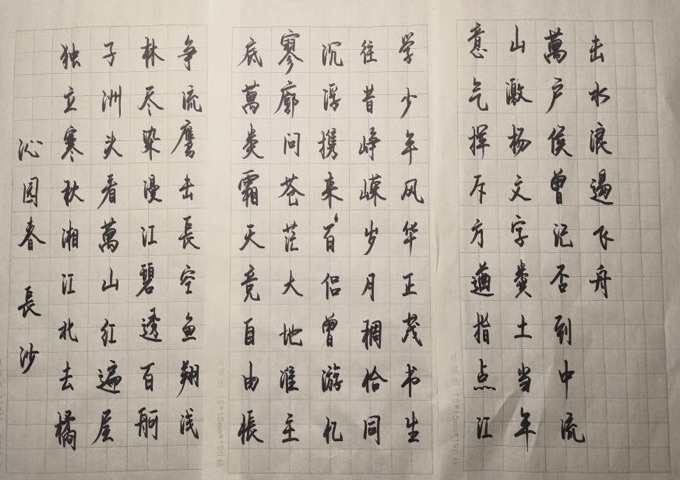 沁园春 長沙
独立寒秋湘江北去橘
子洲头看萬山红遍层
林尽染漫江碧透百舸
争流鹰击長空鱼翔浅
底萬类霜天竟自由悵
寥廓问苍茫大地谁主
沉浮携来百侣曾游忆
往昔峥嵘岁月稠恰同
学少年风华正茂书生
意气挥斥方遒指点江
山激扬文字粪土当年
萬户侯曾记否到中流
击水浪遏飞舟